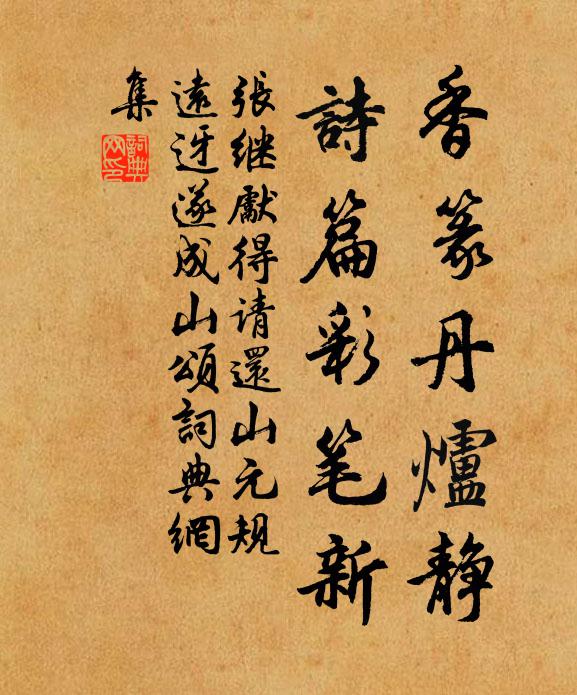 香篆丹爐静
詩篇彩笔新
張继獻得请還山元规
遠迓遂成山頌詞典網
集
詞典
网印